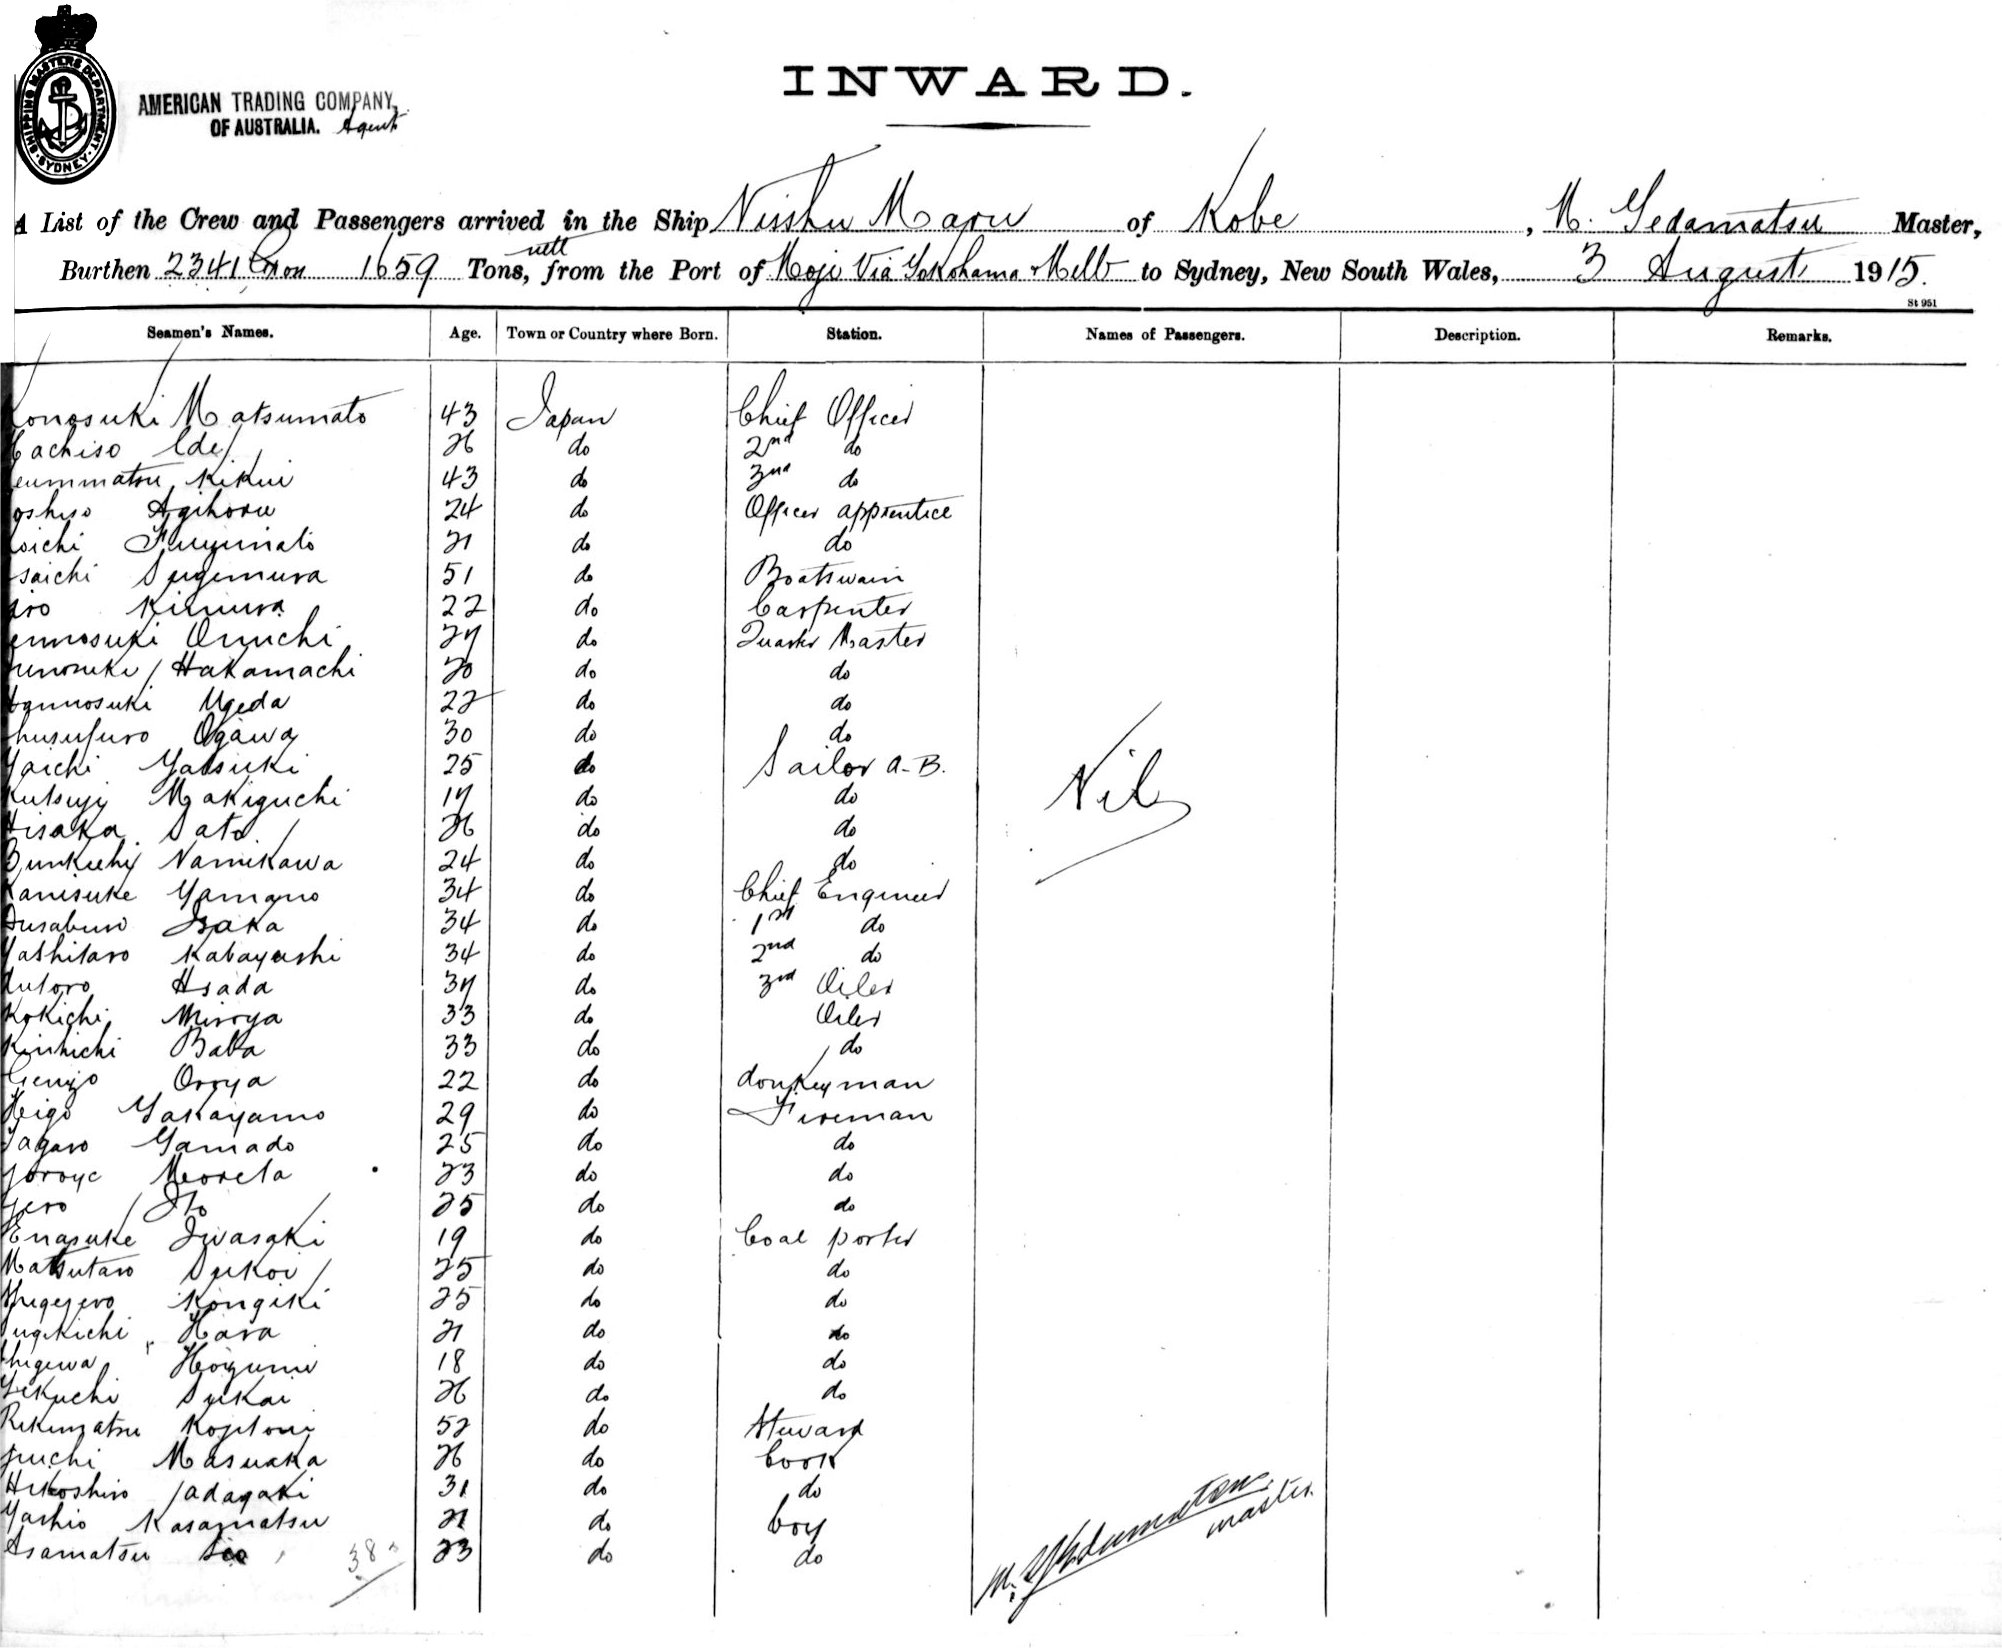 SHIPPING MASTERS DEPARTMENT
SYDNEY
AMERICAN TRADING COMPANY,
OF AUSTRALIA. Agents
INWARD.
A List of the Crew and Passengers arrived in the Ship Nisshu Maru of Kobe, M. Gedamatsu Master,
Burthen 2341 Gross 1659 nett Tons, from the Port of Moji Via Yokohama & Melb to Sydney, New South Wales, 3 August 1915.
St 951
Seamen's Names. Age. Town or Country where Born. Station. Names of Passengers. Description. Remarks.
Konosuki Matsumato 43 Japan Chief Officer
Hachiso Ide 26 do 2nd do
Kikui 43 do 3rd do
Agihoru 24 do Officer apprentice
Fuyumato 21 do do
Sugimura 51 do Boatswain
Kimura 22 do Carpenter
Oruchi 27 do Quarter Master
Hakamachi 20 do do
Ugeda 22 do do
Ogawa 30 do do
Yaichi Yatsuki 25 do Sailor A.B.
Makiguchi 17 do do
Hisaka Sato 26 do do
Namikawa 24 do do
Kanisuke Yamano 34 do Chief Engineer
Isaka 34 do 1st do
Yashitaro Kabayashi 34 do 2nd do
Asada 37 do 3rd Oiler
Kokichi Miroya 33 do Oiler
Kinkichi Baba 33 do do
Genzo Oroya 22 do donkeyman
Heigo Yakayamo 29 do Fireman
Tagaro Yamado 25 do do
Moreta 23 do do
Ito 25 do do
Enasuke Iwasaki 19 do Coal porter
Matsutaro Sukoi 25 do do
Kongiki 25 do do
Hara 21 do do
Hoizumi 18 do do
Sukai 26 do do
Rikimatsu 52 do Steward
Masuaka 26 do Cook
Hikoshiro Tadagaki 31 do do
Yashio Kasamatsu 21 do boy
Asamatsu 23 do do
38
Nil
M. Gedamatsu
master